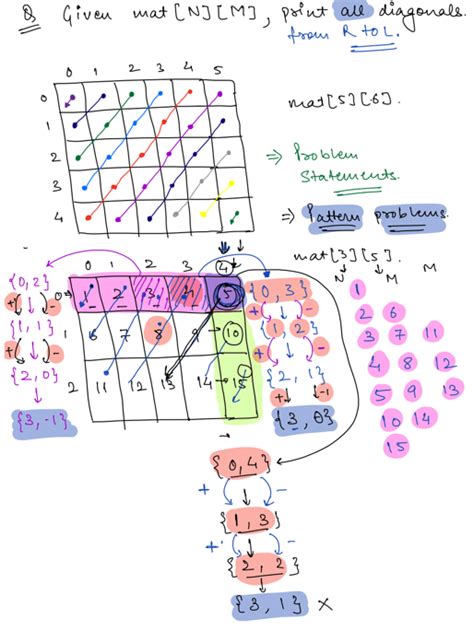 Q Given mat[N][M], print all diagonals.
from R to L.
0 1 2 3 4 5
0
1
2
3
4
mat[5][6].
⇒ Problem
Statements.
⇒ Pattern problems.
mat[3][5].
N M M
0 1 2 3 4
0 1 2 3 4 5
1 6 7 8 9 10
2 11 12 13 14 15
{0,2}
+ -
{1,1}
+ -
{2,0}
{3,-1}
{0,3}
+ -
{1 2}
+ -
{2, 1}
+ -1
{3, 0}
x
1
2 6
3 7 11
4 8 12
5 9 13
10 14
15
{0,4}
+ -
{1,3}
+ -
{2,2}
{3,1} x